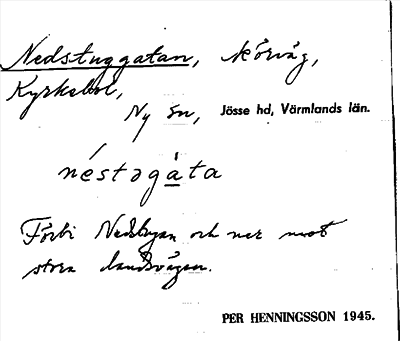 Nedstuggatan, körväg,
Kyrkebol,
Ny sn, Jösse hd, Värmlands län.
néstəgàta
Förbi Nedstugan och ner mot
stora landsvägen.
PER HENNINGSSON 1945.